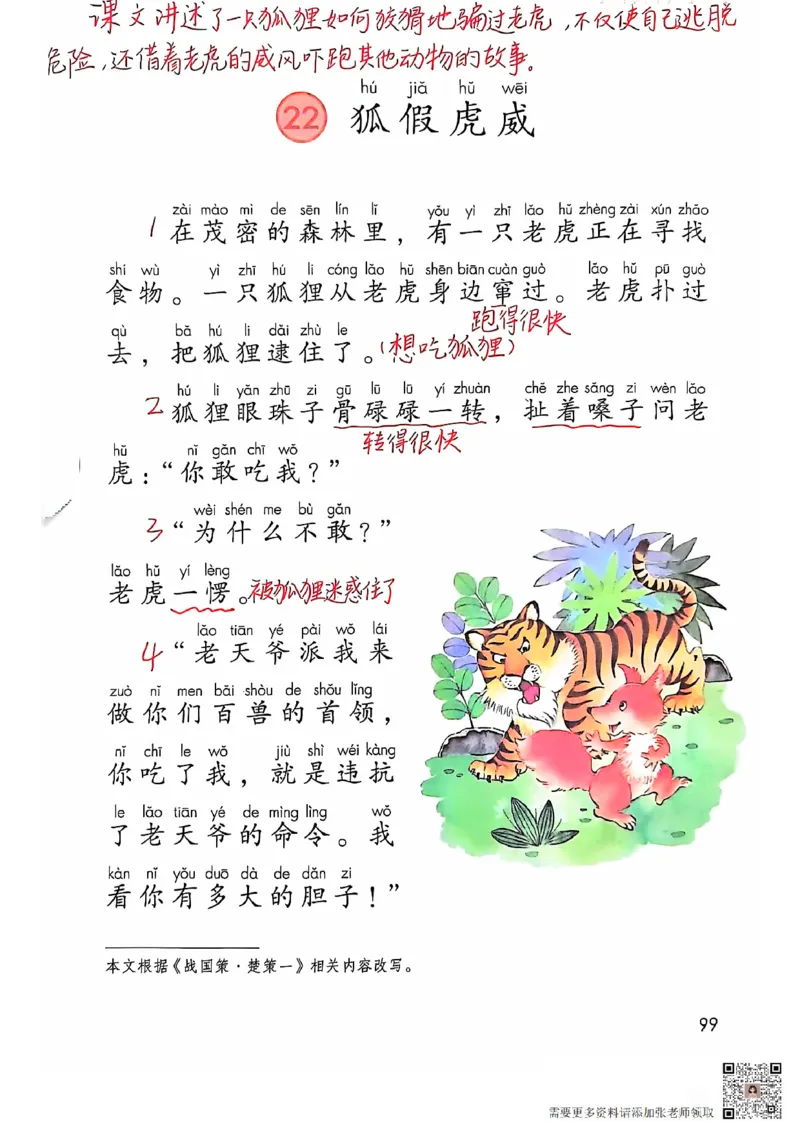 课文讲述了一只狐狸如何狡猾地骗过老虎,不仅使自己逃脱
危险,还借着老虎的威风吓跑其他动物的故事。
hú jiǎ hǔ wēi
22 狐假虎威
zài mào mì de sēn lín lǐ yǒu yì zhī lǎo hǔ zhèng zài xún zhǎo
1 在茂密的森林里，有一只老虎正在寻找
shí wù yì zhī hú li cóng lǎo hǔ shēn biān cuàn guò lǎo hǔ pū guò
食物。一只狐狸从老虎身边窜过。老虎扑过
跑得很快
qù bǎ hú li dǎi zhù le
去，把狐狸逮住了。(想吃狐狸)
hú li yǎn zhū zi gū lū lū yí zhuàn chě zhe sǎng zi wèn lǎo
2 狐狸眼珠子骨碌碌一转，扯着嗓子问老
转得很快
hǔ nǐ gǎn chī wǒ
虎：“你敢吃我？”
wèi shén me bù gǎn
3 “为什么不敢？”
lǎo hǔ yí lèng
老虎一愣。被狐狸迷惑住了
lǎo tiān yé pài wǒ lái
4 “老天爷派我来
zuò nǐ men bǎi shòu de shǒu lǐng
做你们百兽的首领，
nǐ chī le wǒ jiù shì wéi kàng
你吃了我，就是违抗
le lǎo tiān yé de mìng lìng wǒ
了老天爷的命令。我
kàn nǐ yǒu duō dà de dǎn zi
看你有多大的胆子！”
本文根据《战国策·楚策一》相关内容改写。
99
需要更多资料请添加张老师领取